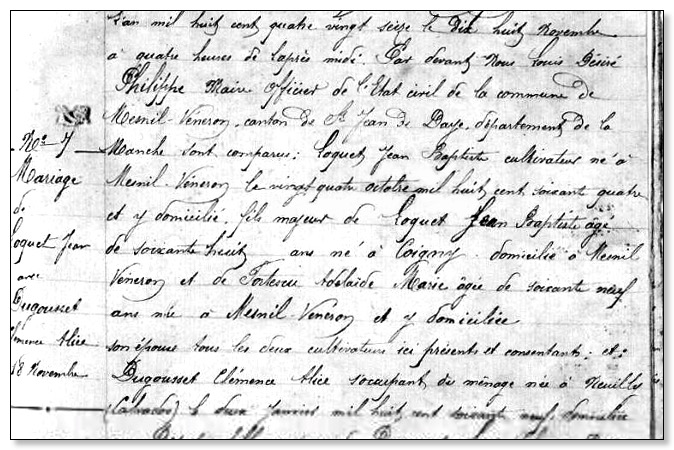 L'an mil huit cent quatre vingt seize le dix huit Novembre
à quatre heures de l'après midi. Par devant Nous Louis Désiré
Philippe Maire Officier de l'Etat civil de la commune de
Mesnil-Véneron, canton de St Jean de Daye, département de la
Manche sont comparus: Loquet Jean Baptiste cultivateur né à
Mesnil-Véneron le vingt quatre octobre mil huit cent soixante quatre
et y domicilié, fils majeur de Loquet Jean Baptiste âgé
de soixante huit ans né à Coigny domicilié à Mesnil
Véneron et de Fortescu Adelaïde Marie âgée de soixante neuf
ans née à Mesnil-Véneron et y domiciliée
son épouse tous les deux cultivateurs ici présents et consentants. et:
Dugousset Clémence Alice s'occupant du ménage née à Neuilly
(Calvados) le deux Janvier mil huit cent soixante neuf domiciliée
No 7
Mariage
de
Loquet Jean
avec
Dugousset
Clémence Alice
18 Novembre